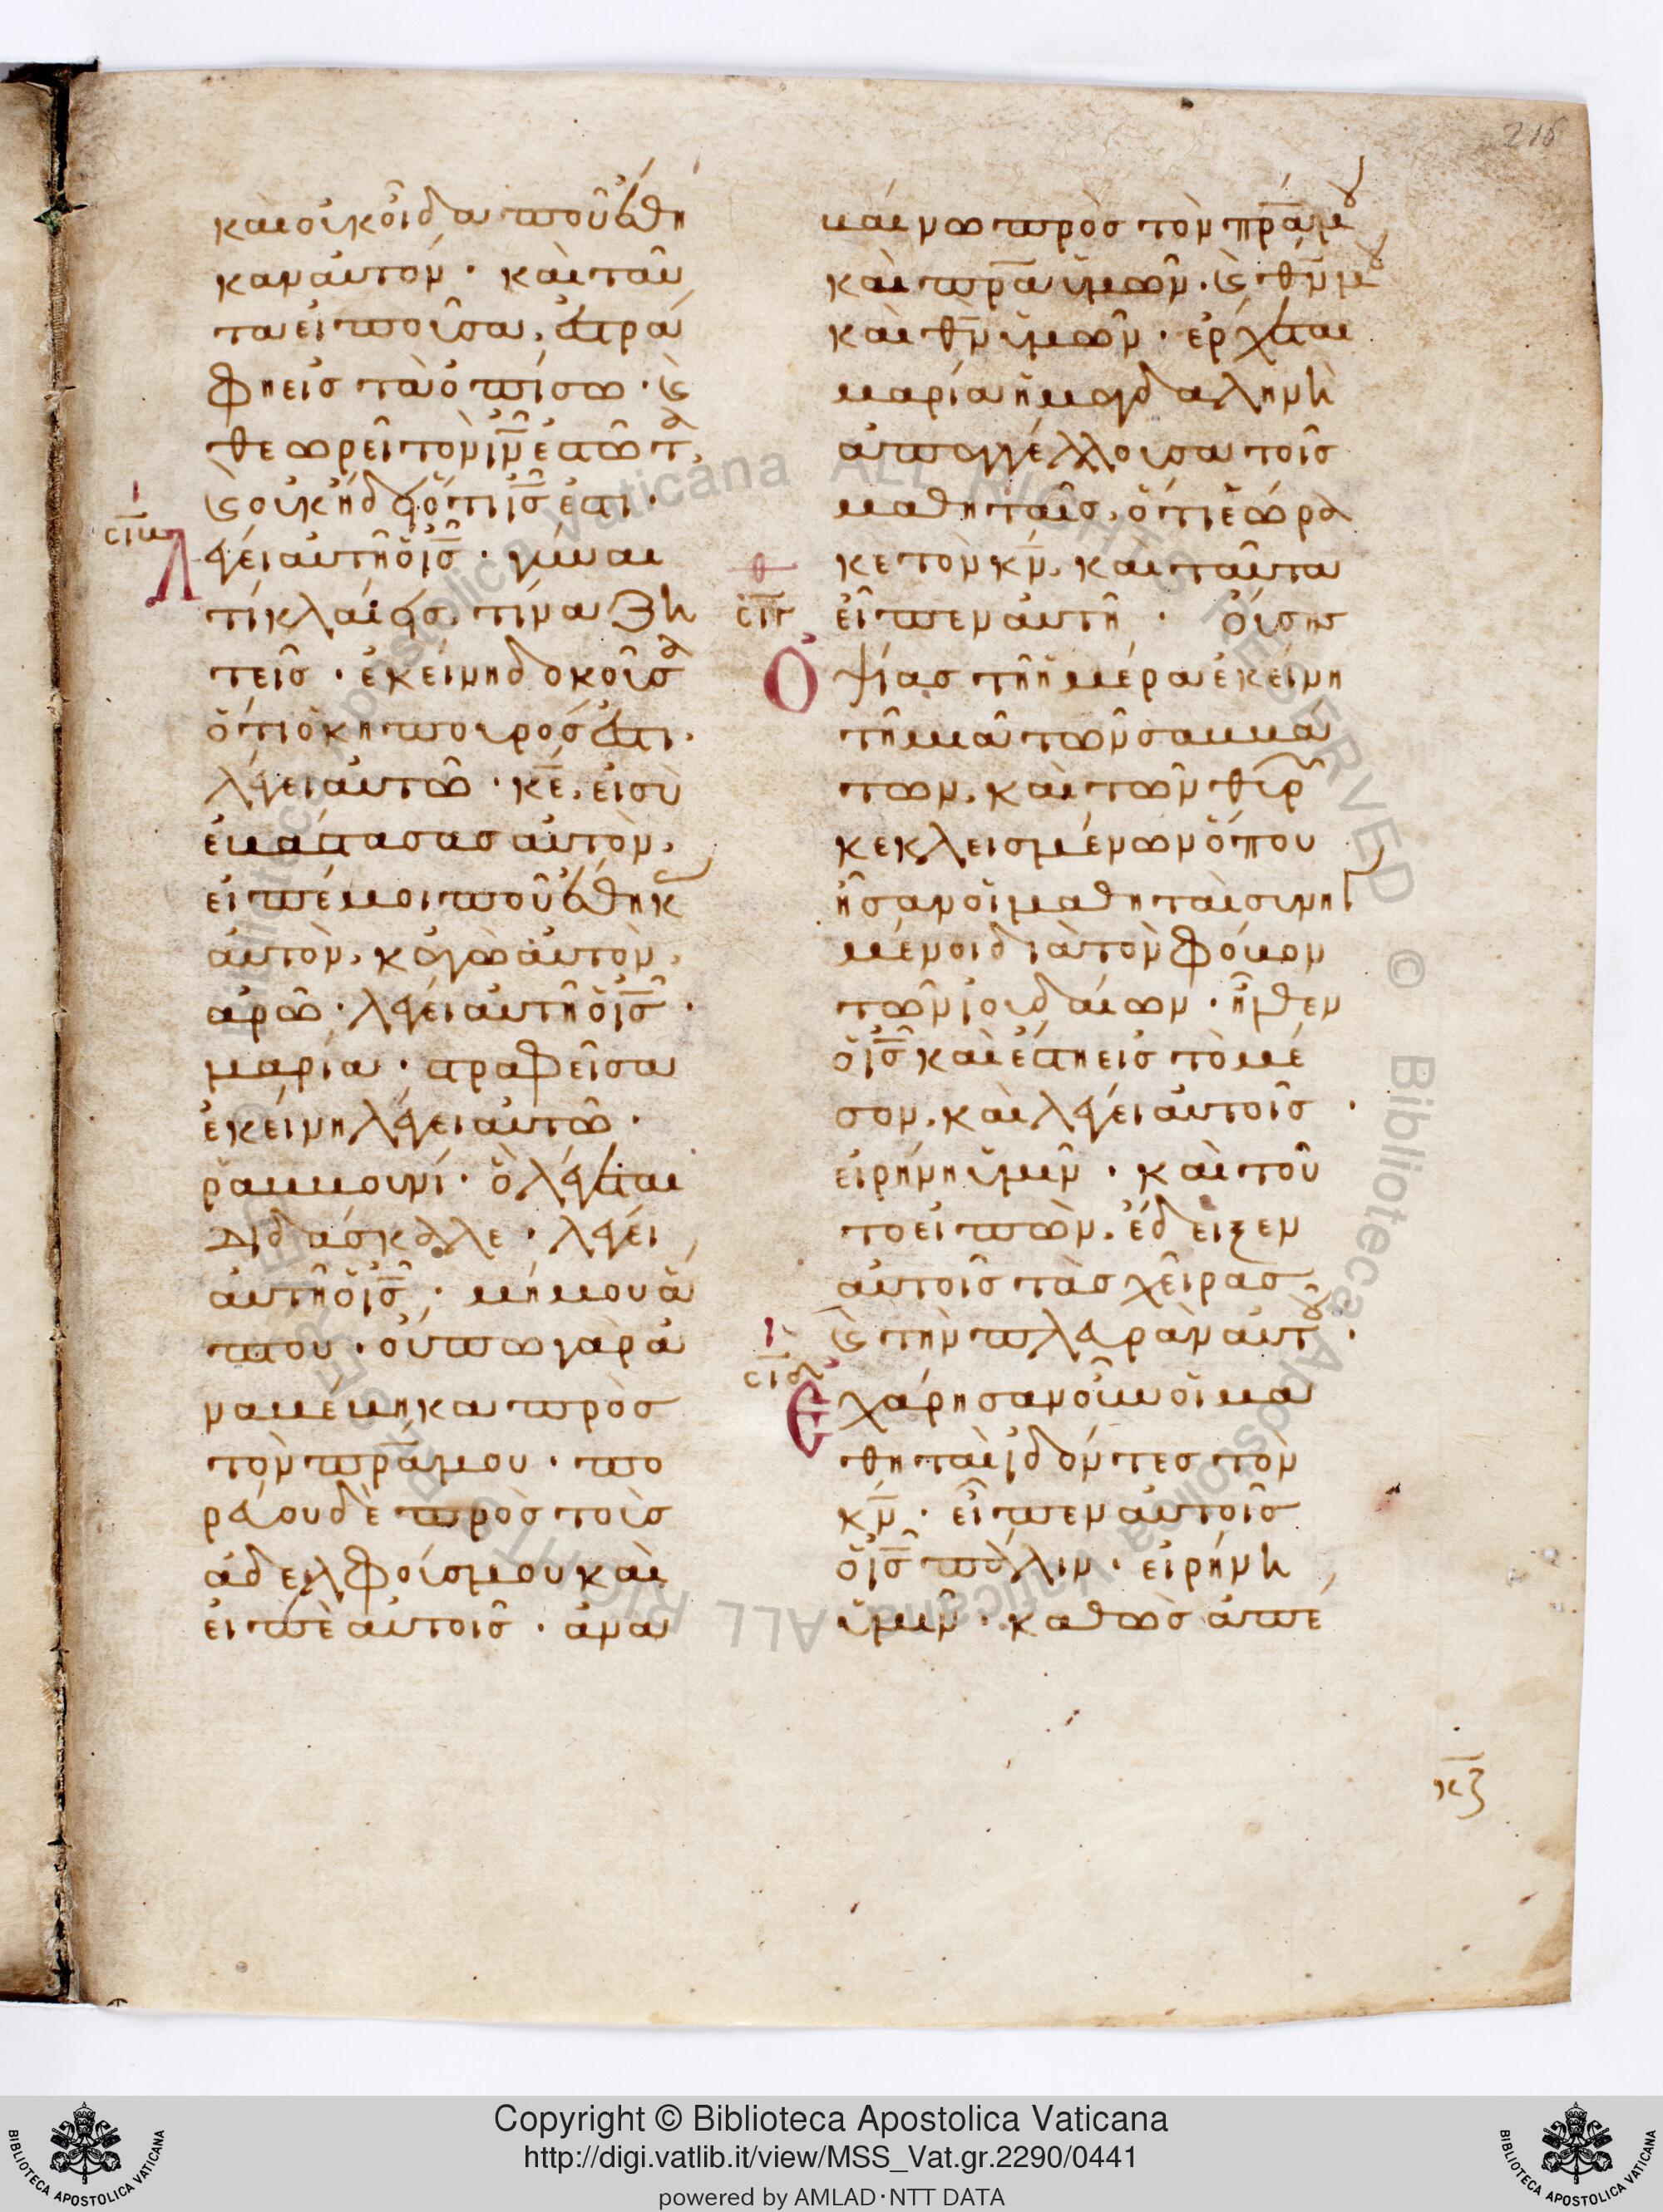 216
καὶ οὐκ οἶδα ποῦ ἔθη
καν αὐτόν· καὶ ταῦ
τα εἰποῦσα, ἐστρά
φη εἰς τὰ ὀπίσω· ϗ
θεωρεῖ τὸν ιν̅ ἑστῶτα,
ϗ οὐκ ήδει ὅτι ις̅ ἐστι·
Λέγει αὐτῆ ὁ ις̅· γύναι
τί κλαίεις, τίνα ζη
τεῖς· ἐκείνη δοκοῦσα
ὅτι ὁ κηπουρός ἐστι·
λέγει αὐτῶ· κε̅, εἰ σὺ
ἐβάστασας αὐτὸν,
εἰπέ μοι ποῦ ἔθηκας
αὐτὸν, κἀγὼ αὐτὸν,
ἀρῶ· λέγει αὐτῆ ὁ ις̅·
μαρία· στραφεῖσα
ἐκείνη λέγει αὐτῶ·
ῥαββουνί· ὃ λέγεται
διδάσκαλε· λέγει
αὐτῆ ὁ ις̅· μή μου ἅ
πτου· οὔπω γὰρ ἀ
ναβέβηκα πρὸς
τὸν πρα̅ μου· πο
ρεύου δὲ πρὸς τοὺς
ἀδελφούς μου καὶ
εἰπὲ αὐτοῖς· ἀνα
σιβ
ι
βαίνω πρὸς τὸν πρα̅ μου
καὶ πρα̅ ὑμῶν· ϗ θν̅ μου
καὶ θν̅ ὑμῶν· έρχεται
μαρία ἡ μαγδαληνὴ
ἀπαγγέλλουσα τοῖς
μαθηταῖς, ὅτι ἑώρα
κε τὸν κν̅, καὶ ταῦτα
εἶπεν αὐτῆ· Οὔσης
ὀψίας τῆ ἡμέρα ἐκείνη
τῆ μιᾶ τῶν σαββά
των, καὶ τῶν θυρῶν
κεκλεισμένων ὅπου
ἦσαν οἱ μαθηταὶ συνηγ
μένοι διὰ τὸν φόβον
τῶν ιουδαίων· ἦλθεν
ὁ ις̅ καὶ έστη εἰς τὸ μέ
σον, καὶ λέγει αὐτοῖς·
εἰρήνη ὑμῖν· καὶ τοῦ
το εἰπὼν, έδειξεν
αὐτοῖς τὰς χεῖρας
ϗ τὴν πλευρὰν αὐτοῦ·
Ἐχάρησαν οὖν οἱ μα
θηταὶ ιδόντες τὸν
κν̅· εἶπεν αὐτοῖς
ὁ ις̅ πάλιν· εἰρήνη
ὑμῖν· καθὼς ἀπέ
θ
σιγ
ι
σιδ
κζ
Copyright © Biblioteca Apostolica Vaticana
http://digi.vatlib.it/view/MSS_Vat.gr.2290/0441
powered by AMLAD·NTT DATA
BIBLIOTECA APOSTOLICA VATICANA
BIBLIOTECA APOSTOLICA VATICANA